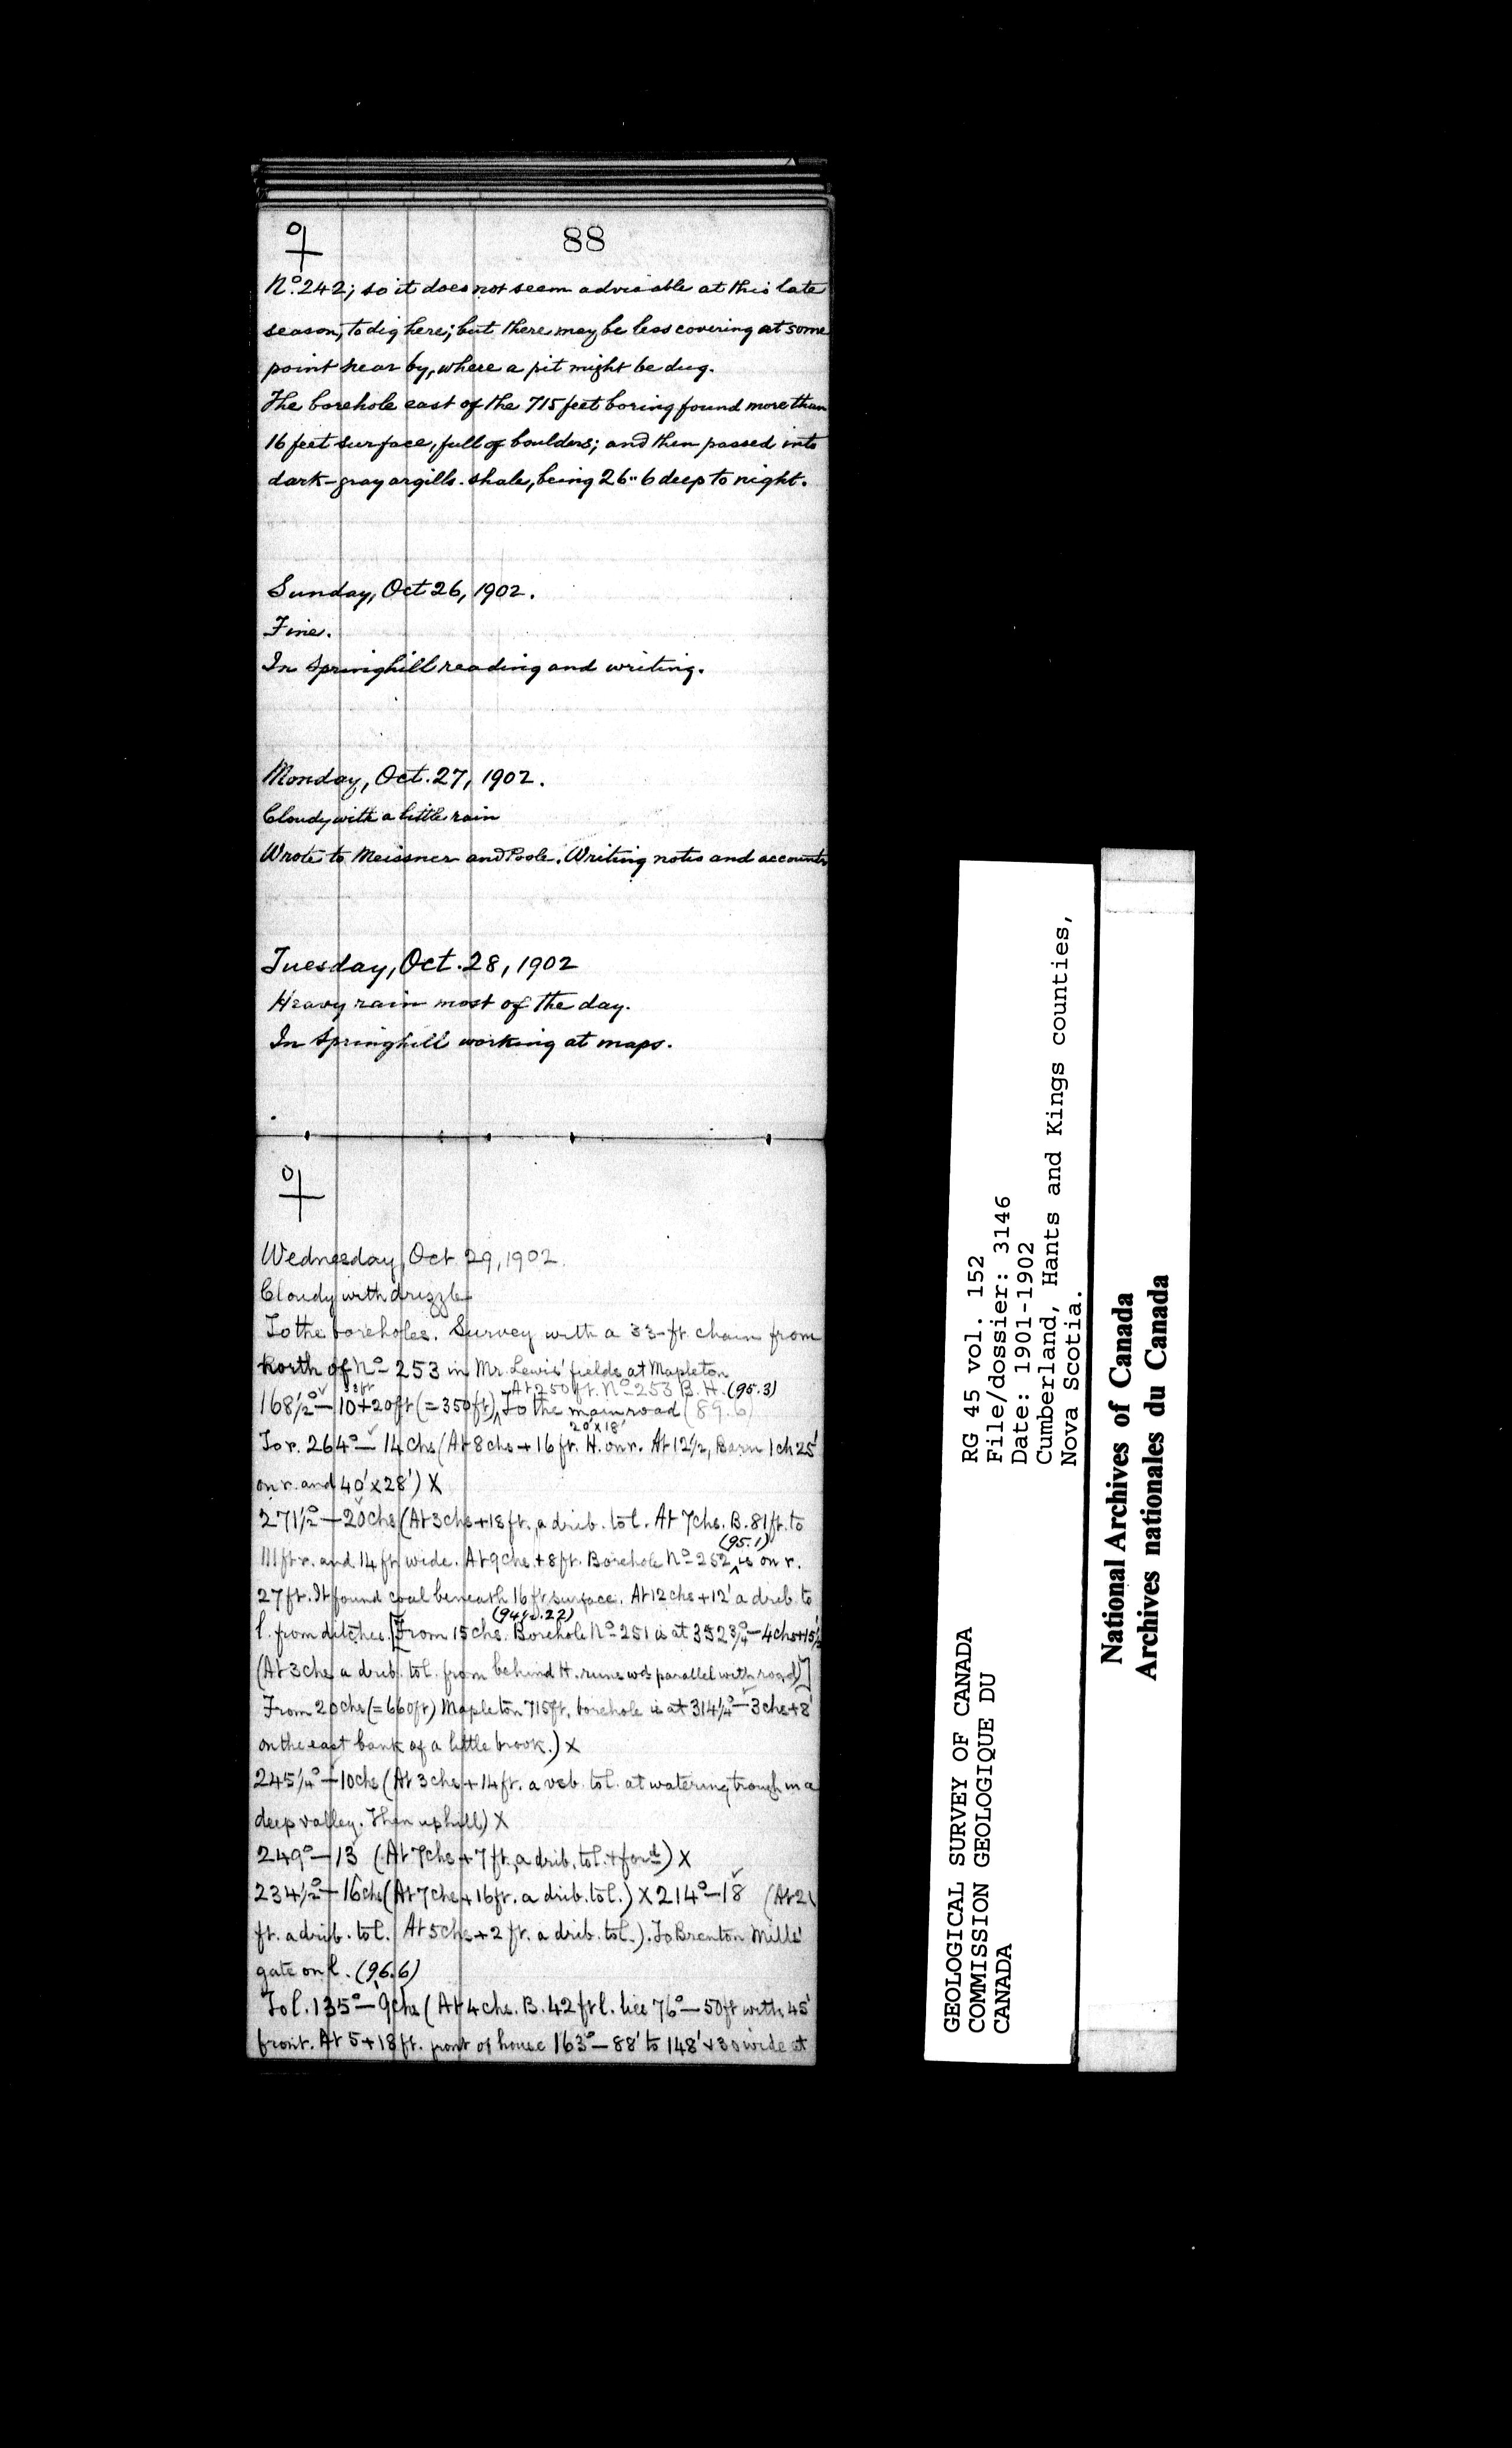 88
No. 242; so it does not seem advisable at this late
season, to dig here; but there may be less covering at some
point near by, where a pit might be dug.
The borehole east of the 715 feet boring found more than
16 feet surface, full of boulders; and then passed into
dark-gray argills. shale, being 26"6 deep to night.
Sunday, Oct 26, 1902.
Fine.
In Springhill reading and writing.
Monday, Oct. 27, 1902.
Cloudy with a little rain
Wrote to Meissner and Poole. Writing notes and accounts
Tuesday, Oct. 28, 1902
Heavy rain most of the day.
In Springhill working at maps.
Wednesday, Oct 29, 1902.
Cloudy with drizzle
To the boreholes. Survey with a 33-ft. chain from
North of No- 253 in Mr. Lewis' fields at Mapleton
33ft At 250 ft. No- 253 B. H. (95.3)
168½°—10+20ft (=350ft) To the main road (89.6)
20'x18'
To r. 264°—14 chs (At 8 chs + 16 ft. H. on r. At 12½, Barn 1 ch 25'
on r. and 40'x28') X
271½°—20chs (At 3chs+18ft. a drib. to l. At 7chs. B. 81ft. to
(95.1)
111ft r. and 14 ft wide. At 9chs.+8ft. Borehole No- 252 is on r.
27ft. It found coal beneath 16ft surface. At 12 chs+12' a drib to
(94 22)
l. from ditches. [From 15 chs. Borehole No- 251 is at 352¾°—4chs+15½
(At 3chs a drib. to l. from behind H. runs wd parallel with road)]
From 20chs (=660ft) Mapleton 715ft. borehole is at 314¼°—3chs+8'
on the east bank of a little brook.) X
245¼°—10chs (At 3chs+14ft. a vsb. to l. at watering trough in a
deep valley. Then uphill) X
249°—13 (At 7chs+7ft. a drib. to l. + ford) X
234½°—16chs (At 7chs+16ft. a drib. to l.) X 214°—18 (At 21
ft. a drib. to l. At 5chs+2 ft. a drib. to l.). To Brenton Mills'
gate on l. (96.6)
To l. 135°—9chs (At 4chs. B. 42ft l. lies 76°—50ft with 45'
front. At 5+18ft. front of house 163°—88' to 148' x 30 wide at
GEOLOGICAL SURVEY OF CANADA
COMMISSION GEOLOGIQUE DU
CANADA
RG 45 vol. 152
File/dossier: 3146
Date: 1901-1902
Cumberland, Hants and Kings counties,
Nova Scotia.
National Archives of Canada
Archives nationales du Canada